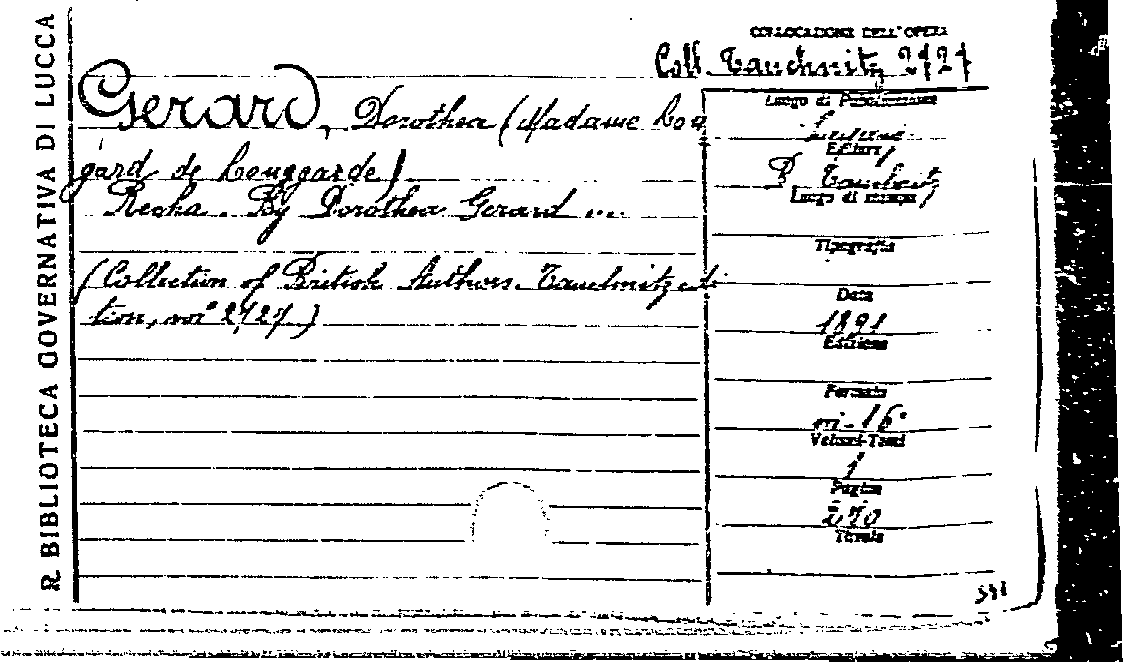 R. BIBLIOTECA GOVERNATIVA DI LUCCA
COLLOCAZIONE DELL'OPERA
Coll. Tauchnitz 2727
Gerard, Dorothea (Madame Lon
gard de Longgarde)
Recha. By Dorothea Gerard ...
(Collection of British Authors. Tauchnitz edi
tion, vol 2727)
Luogo di Pubblicazione
Editore
B. Tauchnitz
Luogo di stampa
Tipografia
Data
1891
Edizione
Formato
in-16°
Volumi-Tomi
1
Pagine
270
Tavole